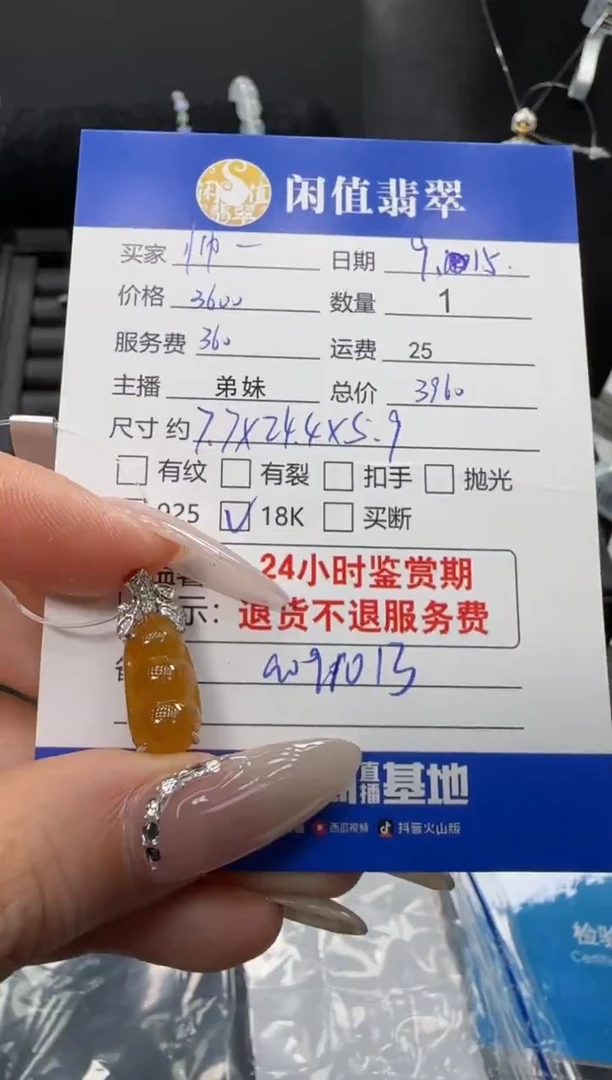 闲值翡翠
闲值翡翠
买家 帅一 日期 9.15.
价格 3600 数量 1
服务费 360 运费 25
主播 弟妹 总价 3960
尺寸 约 7.7X24.4X5.9
有纹 有裂 扣手 抛光
925 18K 买断
24小时鉴赏期
示：退货不退服务费
直播基地
西瓜视频 抖音火山版
检验